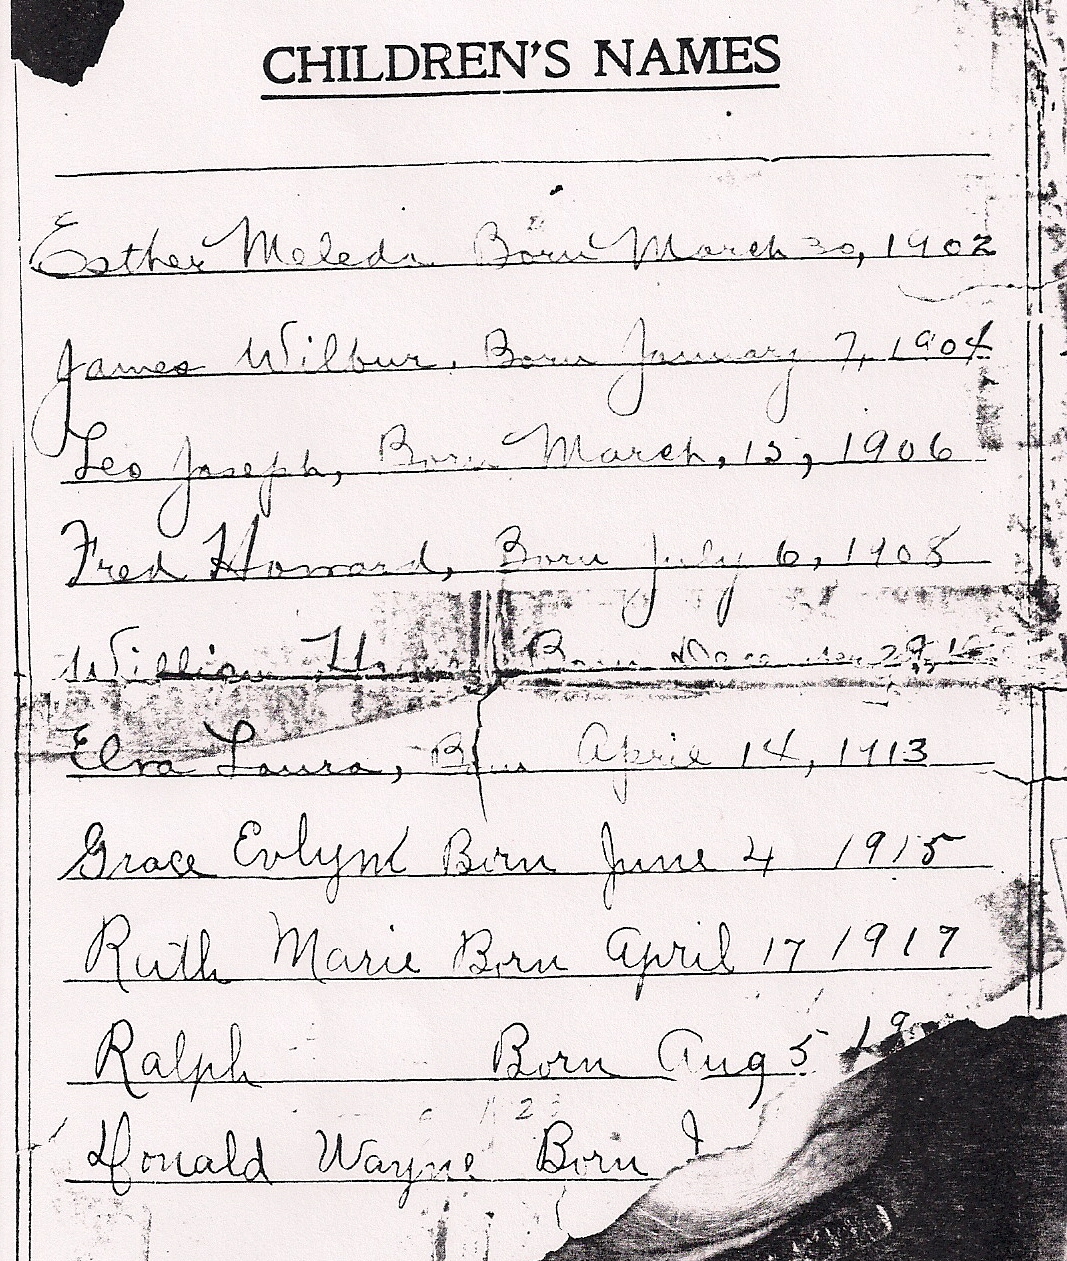 CHILDREN'S NAMES
Esther Meleda Born March 30, 1902
James Wilbur, Born January 7, 1904
Leo Joseph, Born March, 15, 1906
Fred Howard, Born July 6, 1908
William Born
Elva Laura, Born April 14, 1913
Grace Evlynn Born June 4 1915
Ruth Marie Born April 17 1917
Ralph Born Aug 5 19
Donald Wayne Born